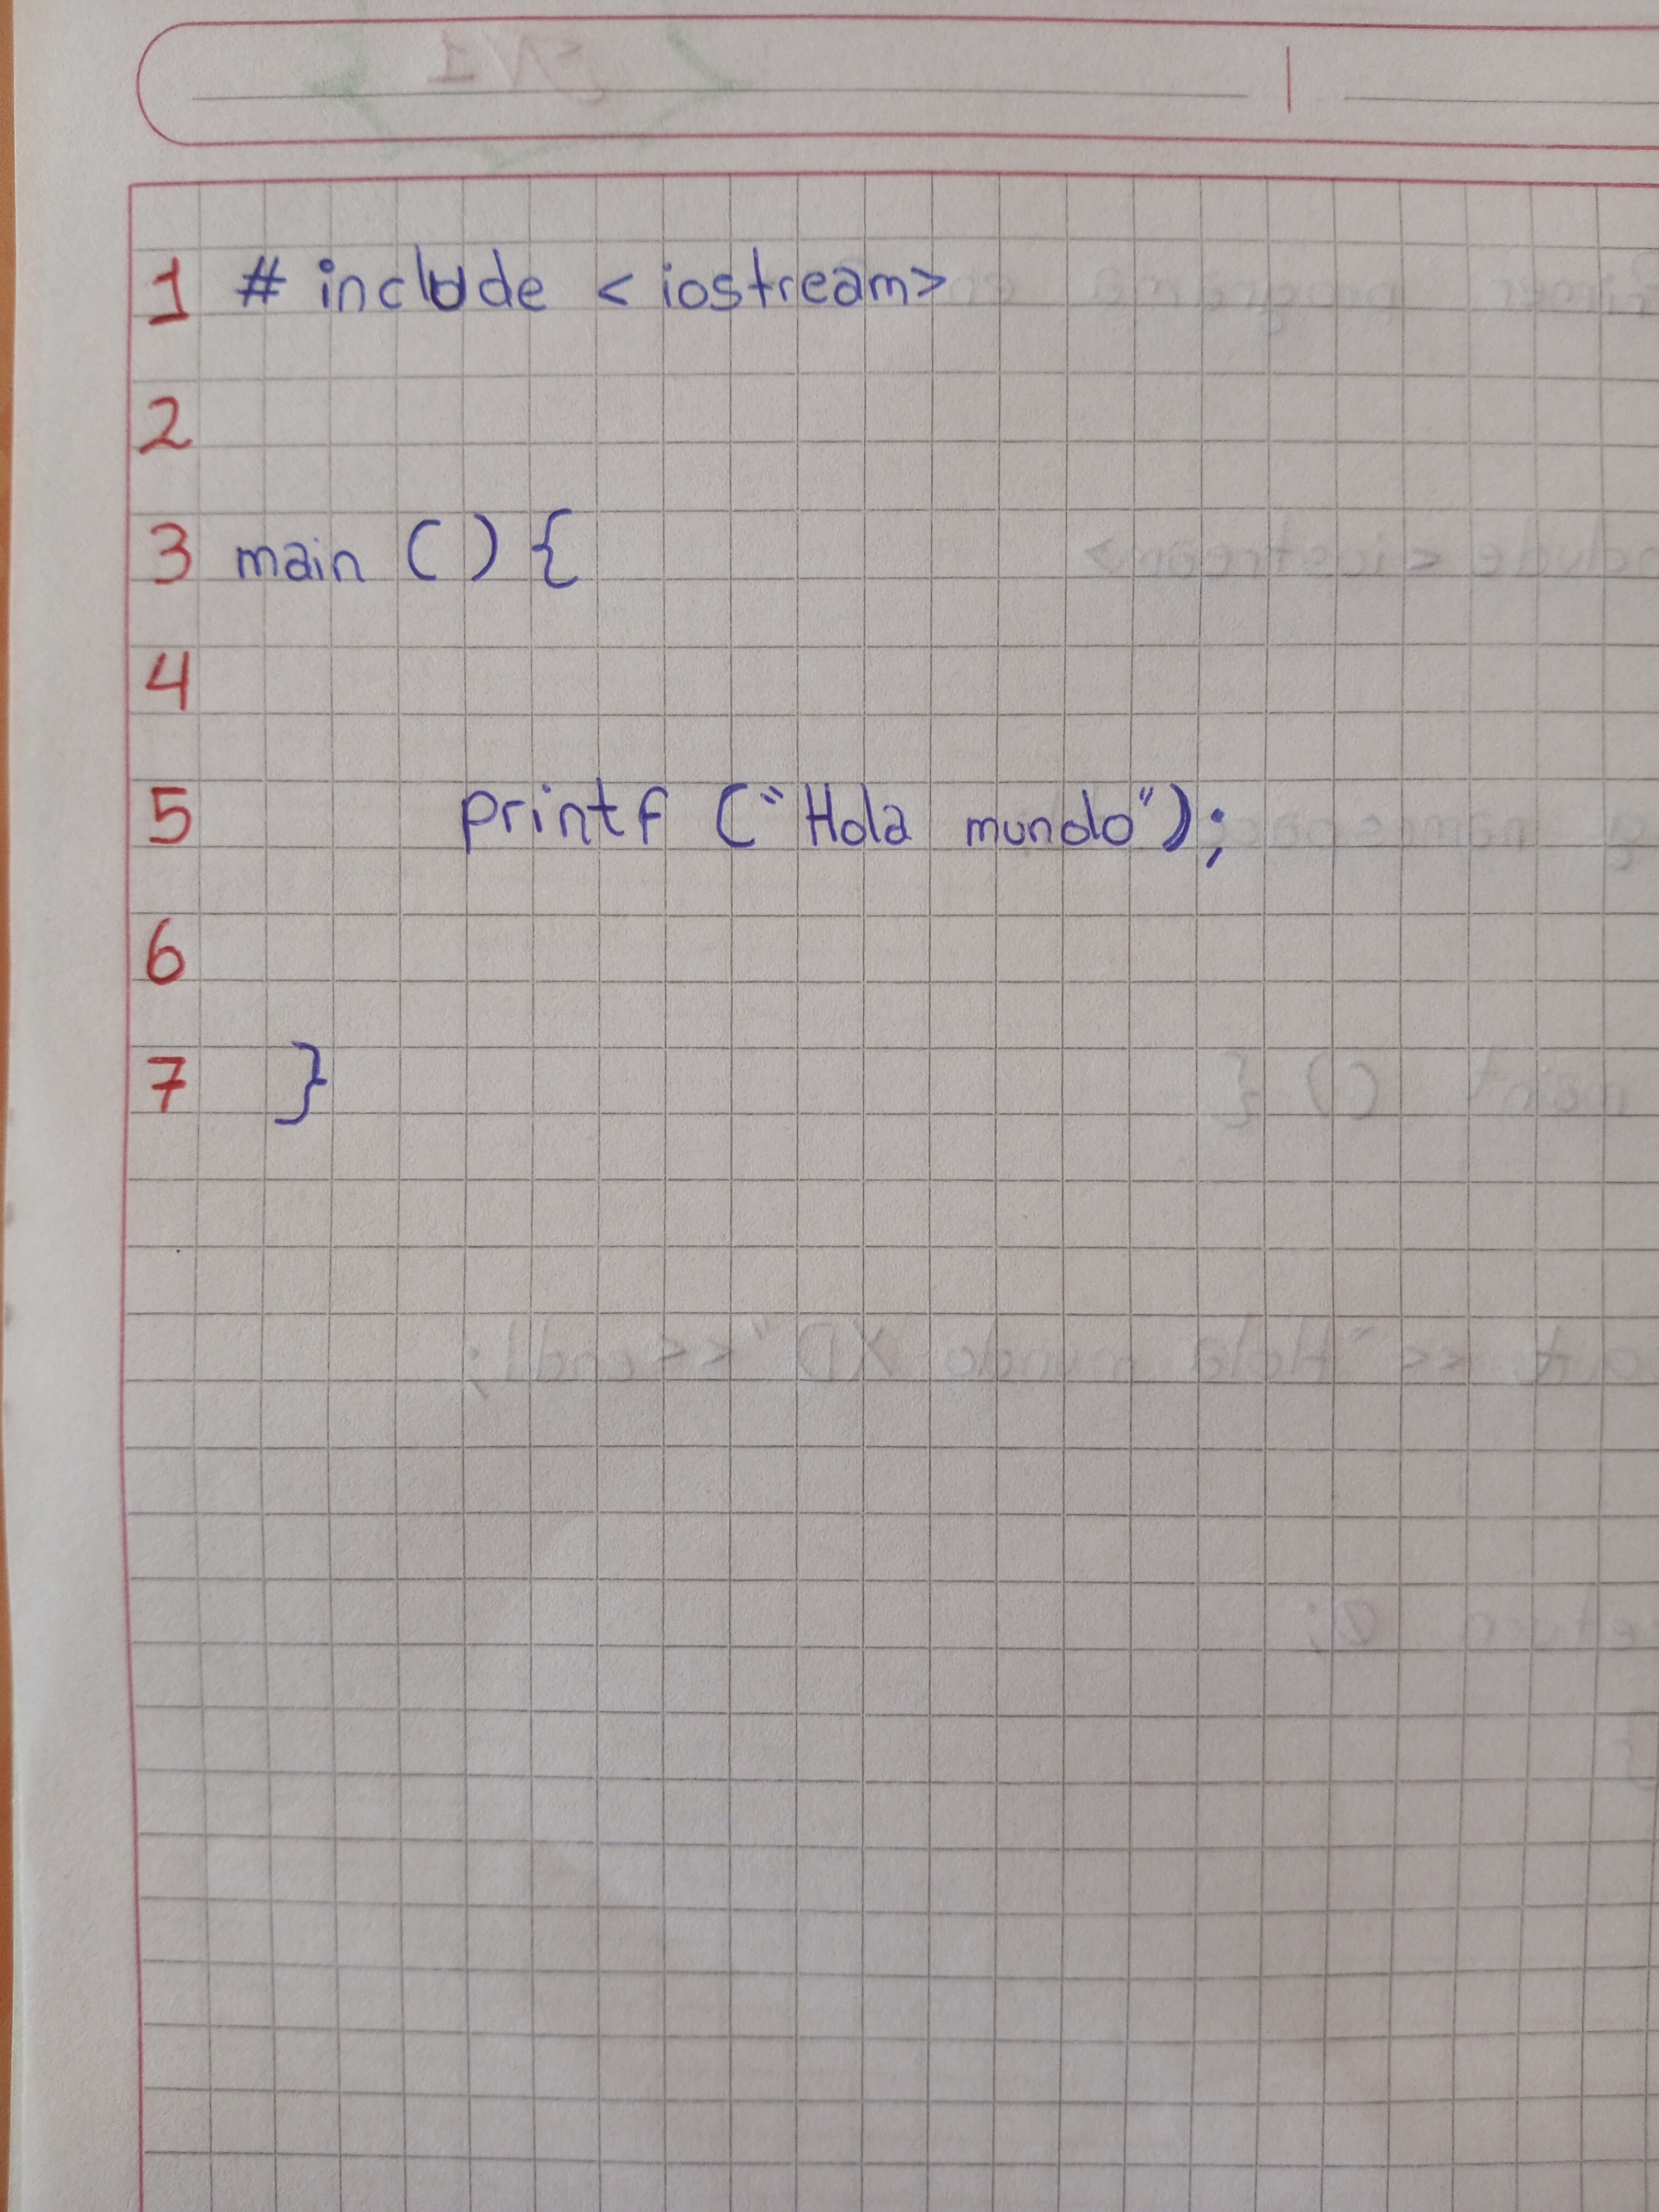 1 # include <iostream>
2
3 main () {
4
5 printf ("Hola mundo");
6
7 }